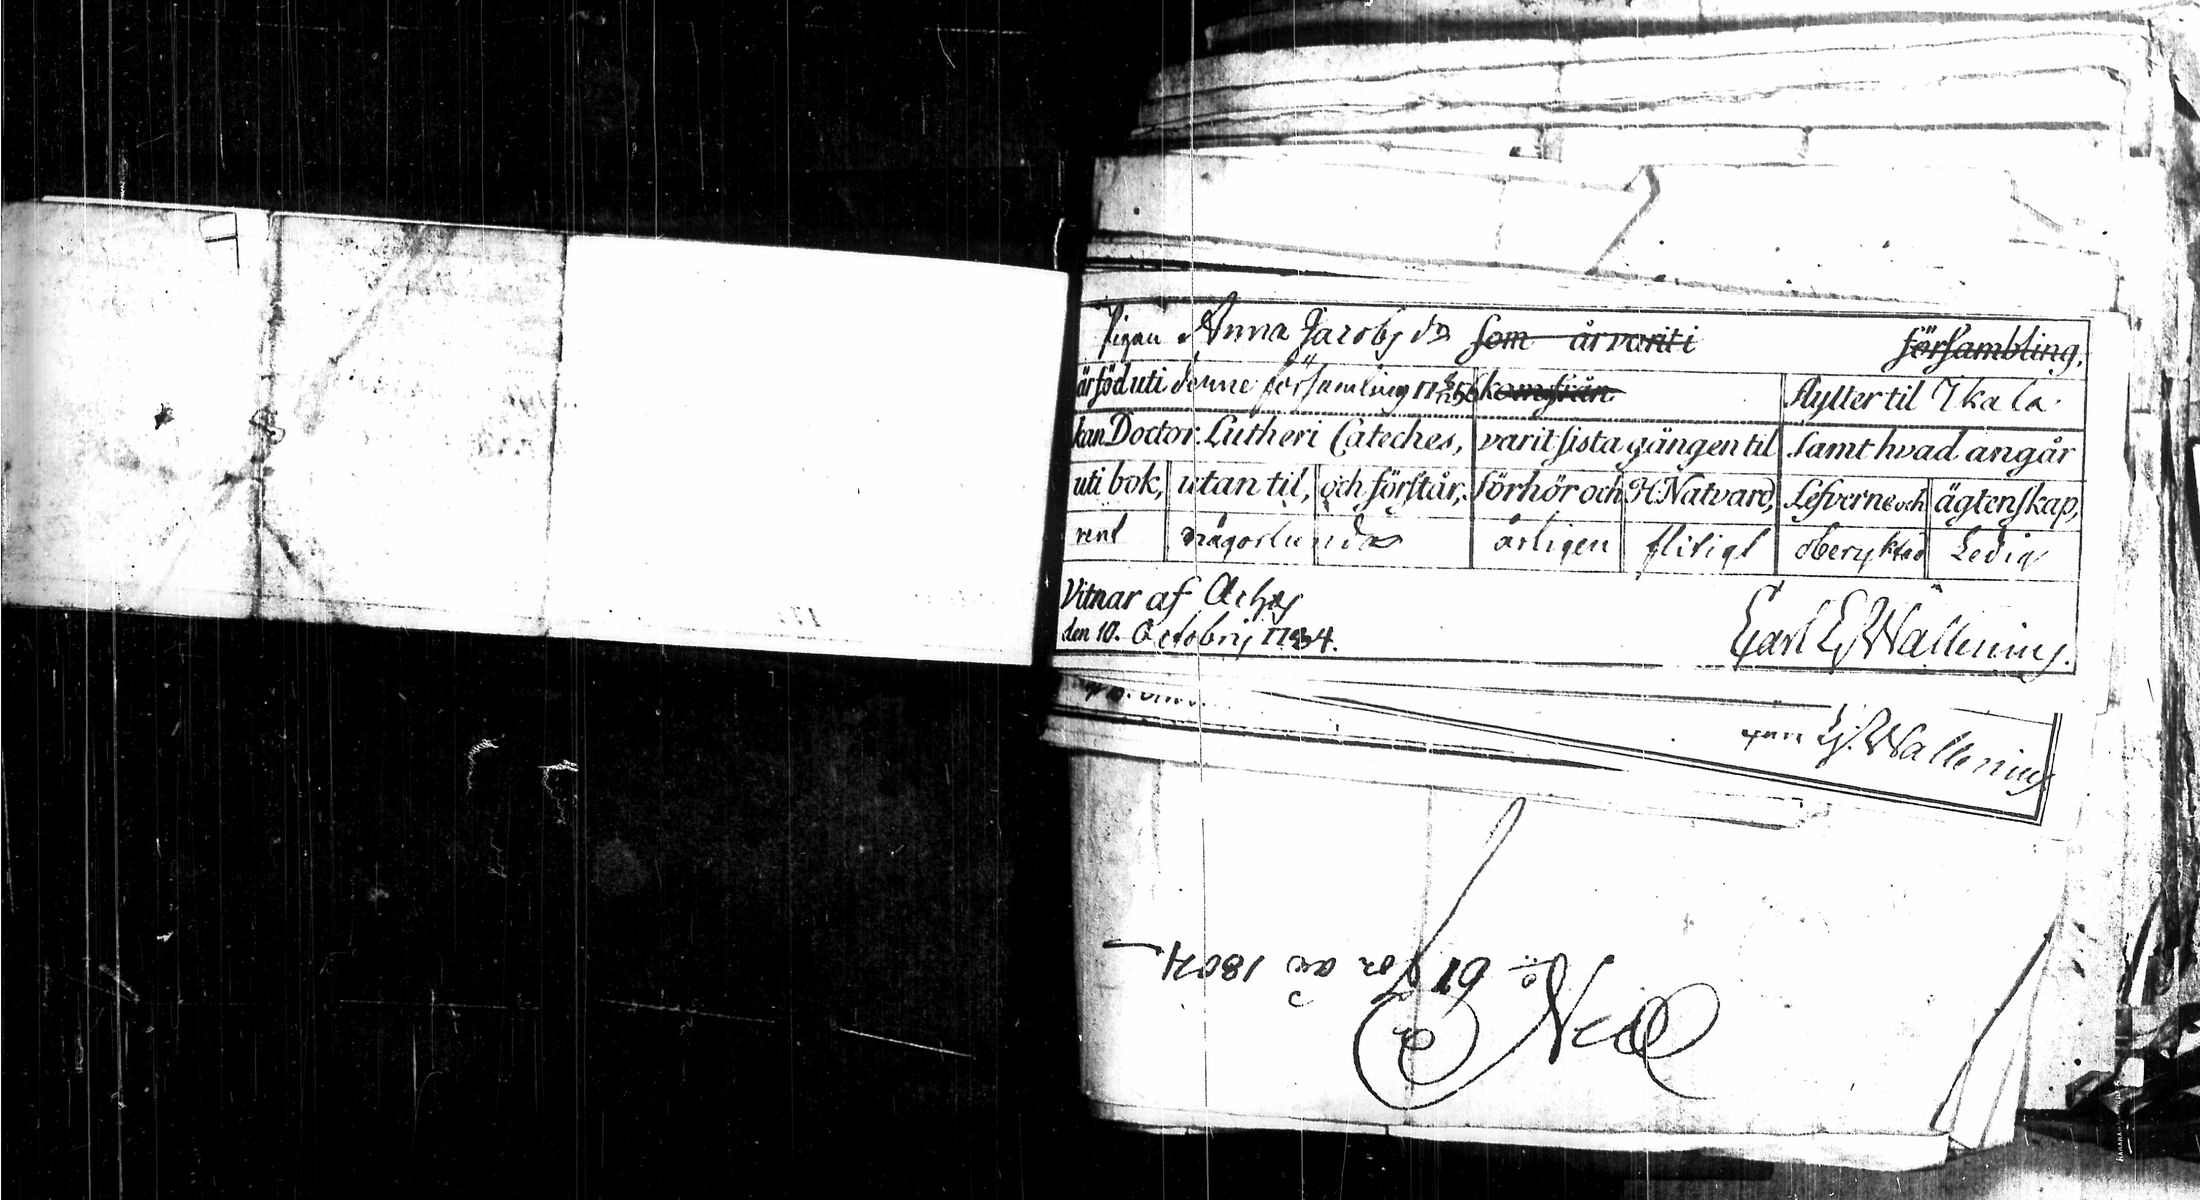 Pigan Anna Jacobs dr som år varit i försambling,
är föd uti denne församling 17 kom från flytter til Ikala
kan Doctor Lutheri Cateches, varit sista gången til samt hvad angår
uti bok, utan til, och förstår, förhör och H. Natvard, Lefverne och ägtenskap,
rent någorlunda årligen flitigt oberyktad Ledig
Vitnar af Achas
den 10. Octobris 1784. Carl Ej. Wallenius.
Ej. Wallenius
No 19 för år 1804